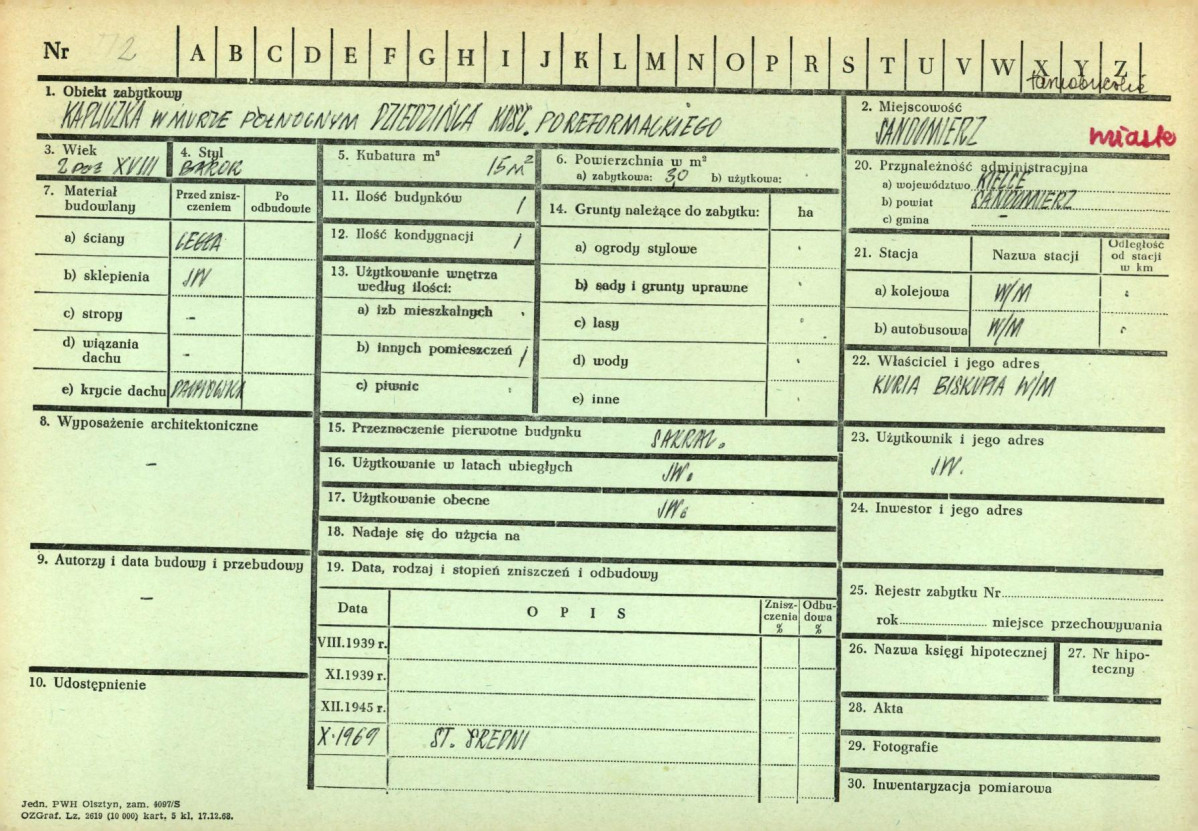 Nr 2 A B C D E F G H I J K L M N O P R S T U V W X Y Z
1. Obiekt zabytkowy
KAPLICZKA W MURZE PÓŁNOCNYM DZIEDZIŃCA KOŚC. POREFORMACKIEGO
2. Miejscowość
SANDOMIERZ miasto
3. Wiek
2 poł XVIII
4. Styl
BAROK
5. Kubatura m³
15 m²
6. Powierzchnia w m²
a) zabytkowa: 3,0 b) użytkowa:
20. Przynależność administracyjna
a) województwo KIELCE
b) powiat SANDOMIERZ
c) gmina –
7. Materiał budowlany
Przed zniszczeniem
Po odbudowie
a) ściany CEGŁA
b) sklepienia JW
c) stropy -
d) wiązania dachu -
e) krycie dachu DACHÓWKA
11. Ilość budynków 1
12. Ilość kondygnacji 1
13. Użytkowanie wnętrza według ilości:
a) izb mieszkalnych
b) innych pomieszczeń 1
c) piwnic
14. Grunty należące do zabytku: ha
a) ogrody stylowe
b) sady i grunty uprawne
c) lasy
d) wody
e) inne
21. Stacja
Nazwa stacji
Odległość od stacji w km
a) kolejowa W/M
b) autobusowa W/M
22. Właściciel i jego adres
KURIA BISKUPIA W/M
8. Wyposażenie architektoniczne
–
15. Przeznaczenie pierwotne budynku SAKRAL.
16. Użytkowanie w latach ubiegłych JW.
17. Użytkowanie obecne JW.
18. Nadaje się do użycia na
23. Użytkownik i jego adres
JW.
24. Inwestor i jego adres
9. Autorzy i data budowy i przebudowy
–
19. Data, rodzaj i stopień zniszczeń i odbudowy
Data
OPIS
Zniszczenia %
Odbudowa %
VIII.1939 r.
XI.1939 r.
XII.1945 r.
X.1969 ST. ŚREDNI
25. Rejestr zabytku Nr
rok miejsce przechowywania
26. Nazwa księgi hipotecznej
27. Nr hipoteczny
10. Udostępnienie
28. Akta
29. Fotografie
30. Inwentaryzacja pomiarowa
Jedn. PWH Olsztyn, zam. 4097/S
OZGraf. Lz. 2619 (10 000) kart, 5 kl. 17.12.68.